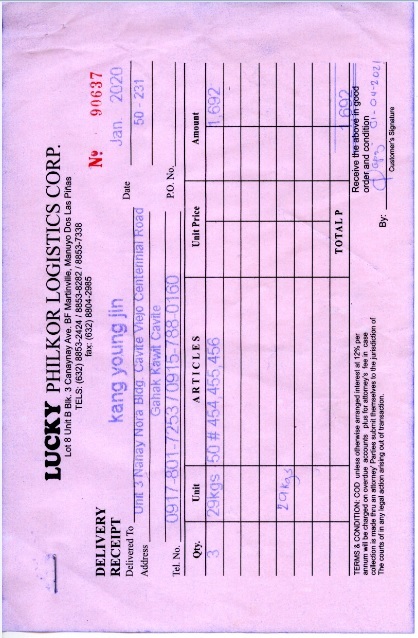 LUCKY PHILKOR LOGISTICS CORP.
Lot 8 Unit B Blk. 3 Canaynay Ave. BF Martinville, Manuyo Dos Las Piñas
TELS: (632) 8853-2424 / 8853-8282 / 8853-7338
fax: (632) 8804-2985
DELIVERY RECEIPT
Nº 90637
Delivered To kang young jin
Date Jan 2020
50 - 231
Address Unit 3 Nanay Nora Bldg. Cavite Viejo Centennial Road
Gahak Kawit Cavite
Tel. No. 0917-801-7253 / 0915-788-0160 P.O. No.
Qty. Unit ARTICLES Unit Price Amount
3 29kgs 50 # 454,455,456 1,692
29kgs
TOTAL P 1,692
TERMS & CONDITION: COD unless otherwise arranged interest at 12% per
annum will be charged on overdue accounts plus for attorney's fee in case
collection is made thru an attorney' Parties submit themselves to the jurisdiction of
The courts of in any legal action arising out of transaction.
Receive the above in good
order and condition
By: 01-04-2021
Customer's Signature